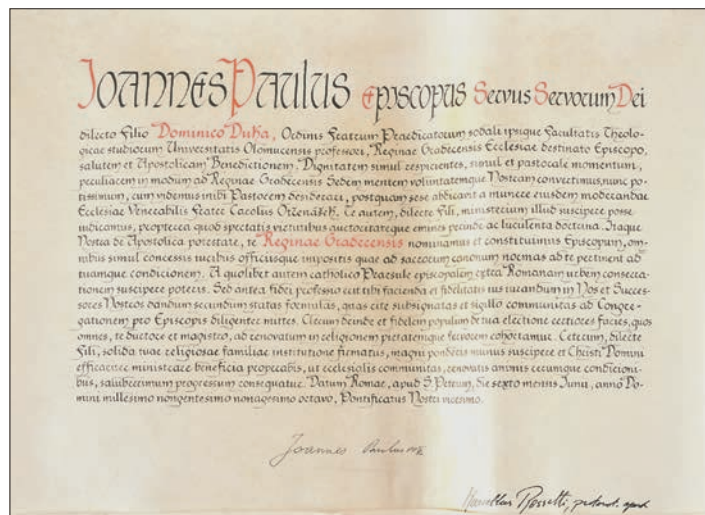 Joannes Paulus Episcopus Servus Servorum Dei
dilecto Filio Dominico Duka, Ordinis Fratrum Praedicatorum sodali ipsique Facultatis Theolo-
gicae studiorum Universitatis Olomucensis professori, Reginae Gradecensis Ecclesiae destinato Episcopo,
salutem et Apostolicam Benedictionem. Dignitatem simul respicientes, simul et pastorale momentum,
peculiarem in modum ad Reginae Gradecensis Sedem mentem voluntatemque Nostram convertimus, nunc po-
tissimum, cum videmus inibi Pastorem desiderari, postquam sese abdicavit a munere eiusdem moderandae
Ecclesiae Venerabilis Frater Carolus Otčenášek. Te autem, dilecte Fili, ministerium illud suscipere posse
iudicamus, propterea quod spectatis virtutibus auctoritateque emines perinde ac luculenta doctrina. Itaque
Nostra de Apostolica potestate, te Reginae Gradecensis nominamus et constituimus Episcopum, om-
nibus simul concessis iuribus officiisque impositis quae ad sacrorum canonum normas ad te pertinent ad
tuamque condicionem. A quolibet autem catholico Praesule episcopalem extra Romanam urbem consecra-
tionem suscipere poteris. Sed antea fidei professio erit tibi facienda et fidelitatis ius iurandum in Nos et Succes-
sores Nostros dandum secundum statas formulas, quas rite subsignatas et sigillo communitas ad Congre-
gationem pro Episcopis diligenter mittes. Clerum deinde et fidelem populum de tua electione certiores facies, quos
omnes, te ductore et magistro, ad renovatum in religionem pietatemque fervorem cohortamur. Ceterum, dilecte
Fili, solida tuae religiosae familiae institutione firmatus, magni ponderis munus suscipere et Christi Domini
efficaciter ministrare beneficia properabis, ut ecclesialis communitas, renovatis animis rerumque condicioni-
bus, saluberrimum progressum consequatur. Datum Romae, apud S. Petrum, die sexto mensis Iunii, anno Do-
mini millesimo nongentesimo nonagesimo octavo, Pontificatus Nostri vicesimo.
Joannes Paulus PP. II
Marcellus Rossetti, protonot. apost.